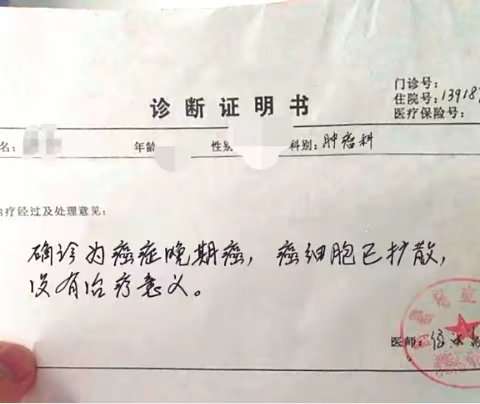 门诊号:
诊断证明书
住院号:13918
医疗保险号:
名:
年龄
性别
科别:肿瘤科
治疗经过及处理意见:
确诊为癌症晚期癌,癌细胞已扩散,
没有治疗意义。
医师: